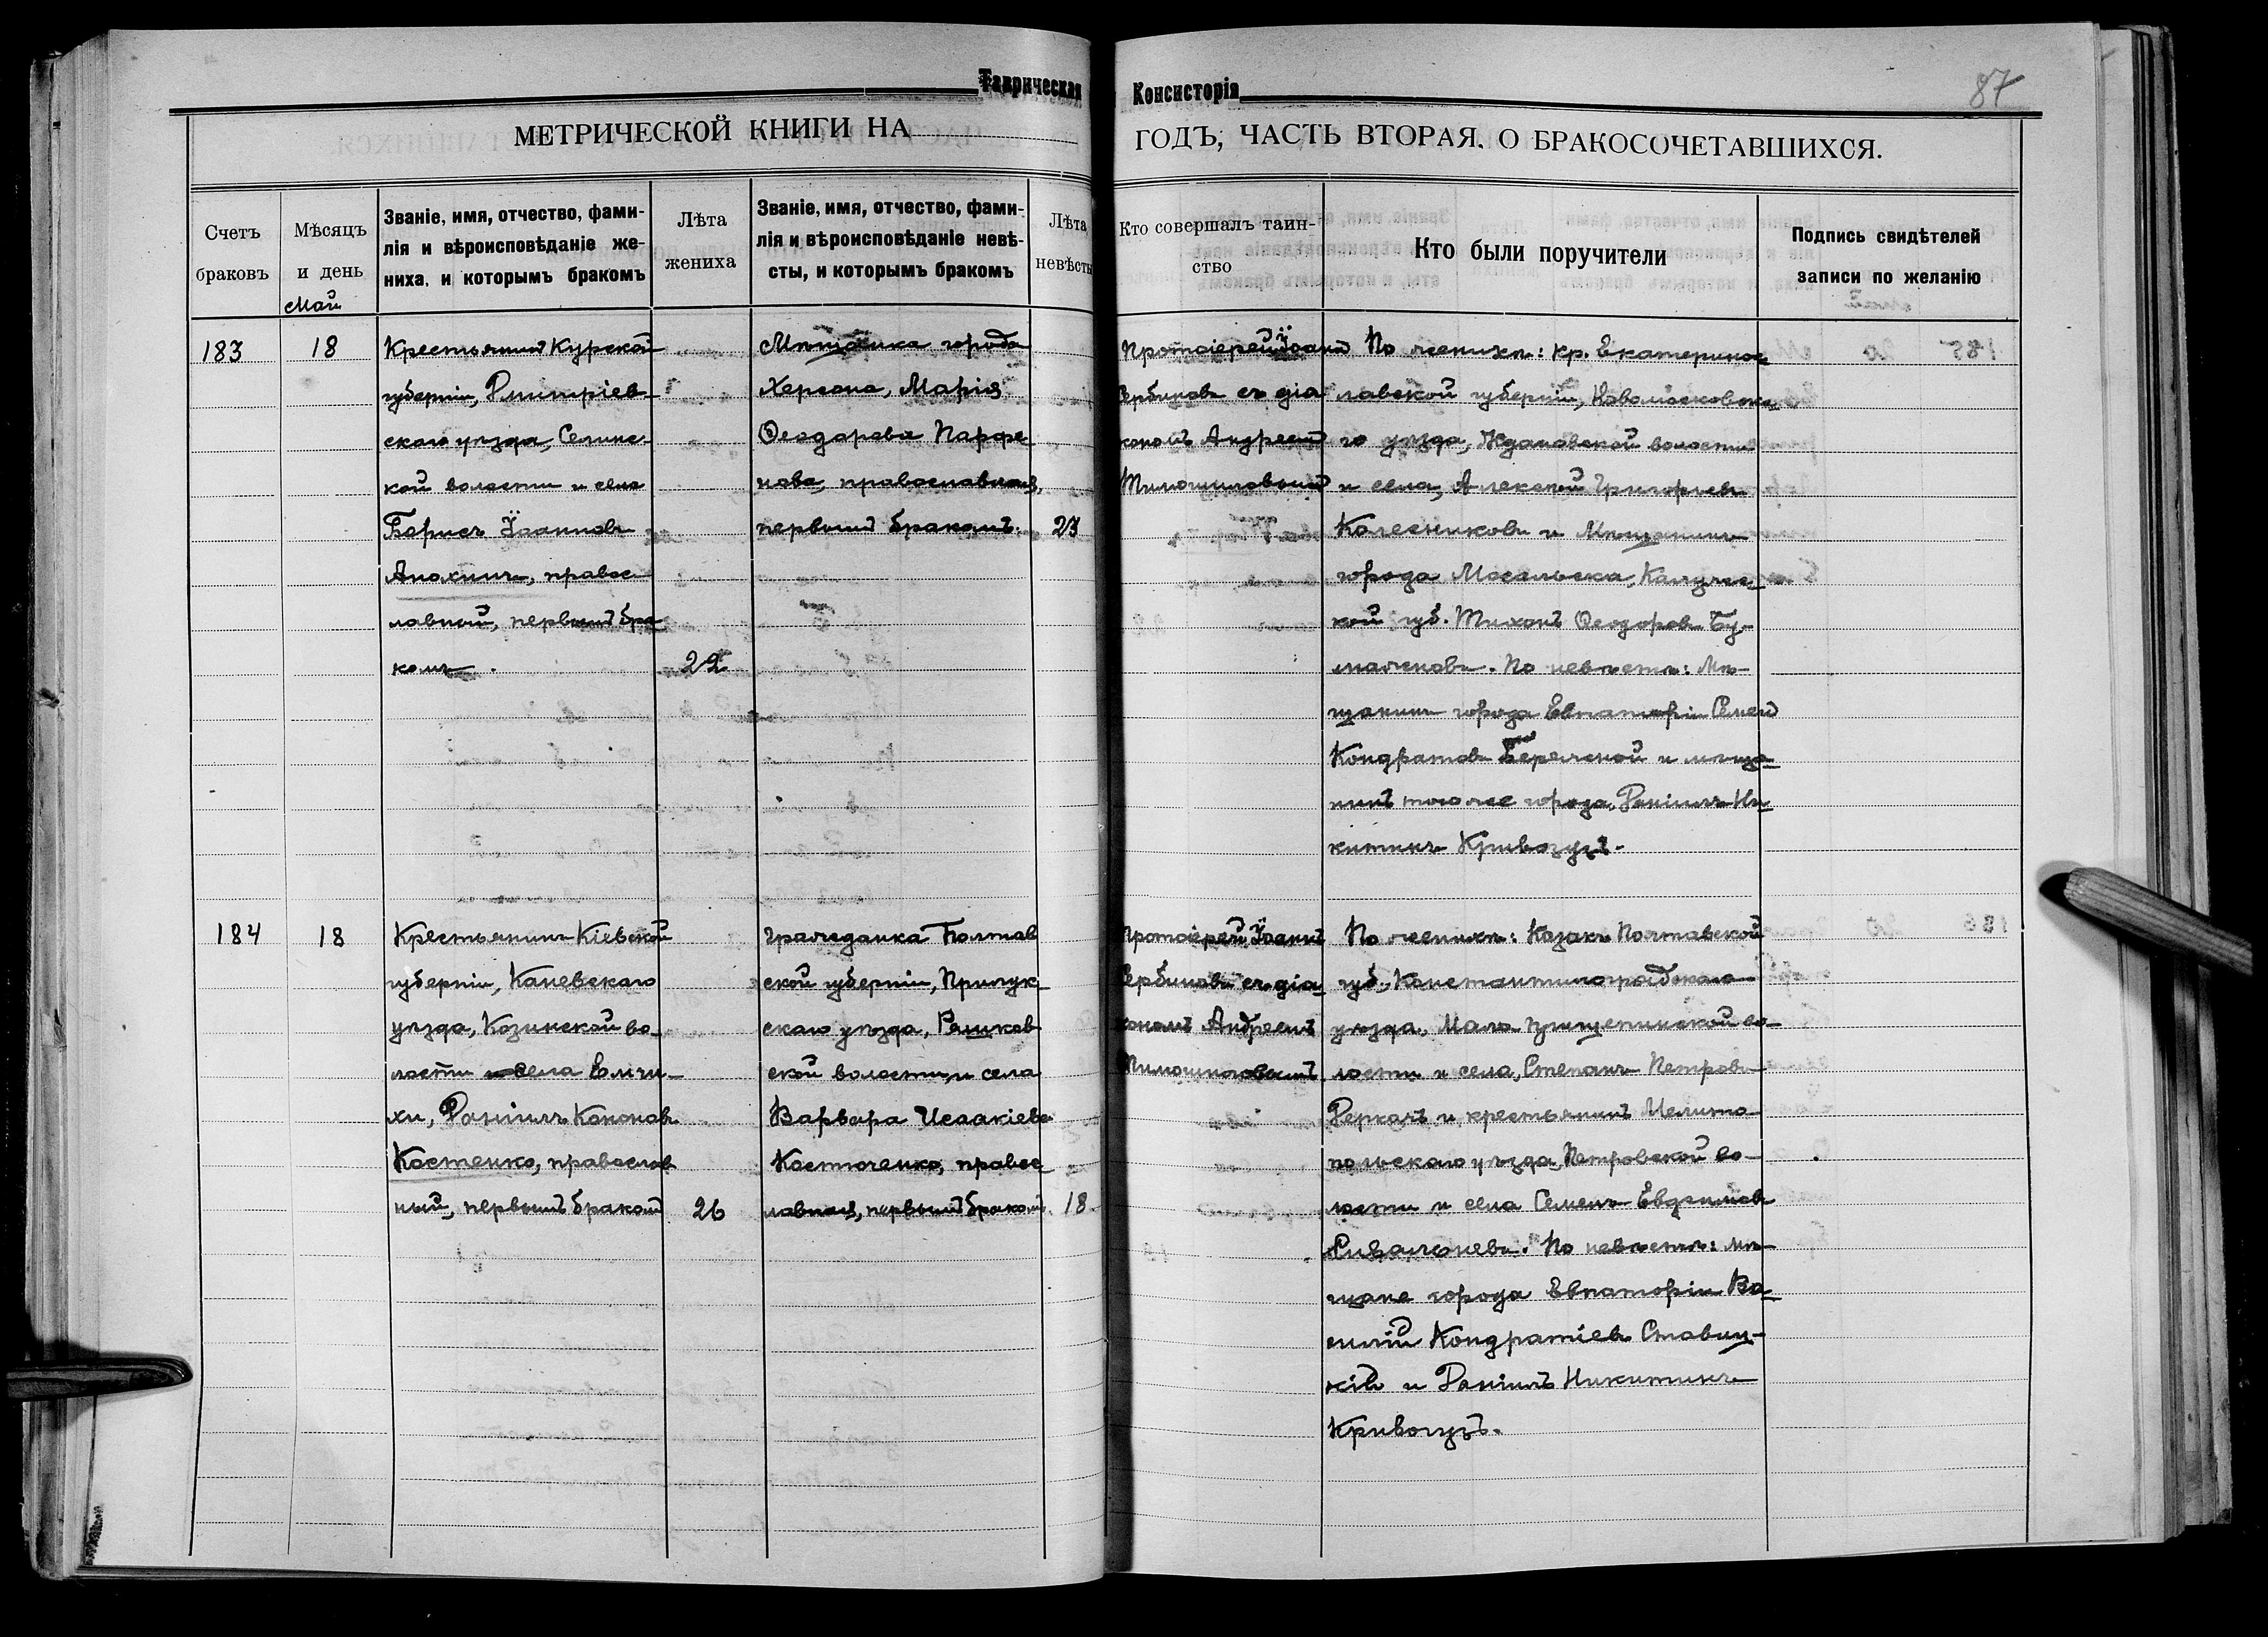 Таврическая Консисторія
87
МЕТРИЧЕСКОЙ КНИГИ НА ГОДЪ, ЧАСТЬ ВТОРАЯ, О БРАКОСОЧЕТАВШИХСЯ.
Счетъ
браковъ
Мѣсяцъ
и день
Май
Званіе, имя, отчество, фами-
лія и вѣроисповѣданіе же-
ниха, и которымъ бракомъ
Лѣта
жениха
Званіе, имя, отчество, фами-
лія и вѣроисповѣданіе невѣ-
сты, и которымъ бракомъ
Лѣта
невѣсты
Кто совершалъ таин-
ство
Кто были поручители
Подпись свидѣтелей
записи по желанію
183
18
Крестьянинъ Курской
губерніи, Дмитріев-
скаго уѣзда, Селинс-
кой волости и села
Борисъ Іоанновъ
Анохинъ, правос-
лавный, первымъ бра-
комъ.
22
Мѣщанка города
Херсона, Марія
Ѳеодорова Парфе-
нова, православная,
первымъ бракомъ.
23
Протоіерей Іоаннъ
Сербиновъ съ діа-
кономъ Андреемъ
По женихѣ: кр. Екатеринос-
лавской губерніи, Новомосковска-
го уѣзда, Ждановской волости
и села, Алексѣй Григорьевъ
Колесниковъ и Мѣщанинъ
города Мосальска, Калужс-
кой губ. Тихонъ Ѳеодоровъ Бу-
мажновъ. По невѣстѣ: Мѣ-
щанинъ города Евпаторіи Семенъ
Кондратовъ Бережной и мѣща-
нинъ того же города, Даніилъ Ни-
китинъ Кривогузъ.
184
18
Крестьянинъ Кіевской
губерніи, Каневскаго
уѣзда, Козинской во-
лости села Емчи-
хи, Даніилъ Кононовъ
Костенко, православ-
ный, первымъ бракомъ
26
Гражданка Полтав-
ской губерніи, Прилук-
скаго уѣзда, Ряшков-
ской волости и села
Варвара Исаакіева
Костюченко, правос-
лавная, первымъ бракомъ.
18
Протоіерей Іоаннъ
Сербиновъ съ діа-
кономъ Андреемъ
По женихѣ: Казакъ Полтавской
губ., Константиноградскаго
уѣзда, Мало-Перещепинской во-
лости и села, Степанъ Петровъ
Деркачъ и крестьянинъ Мелито-
польскаго уѣзда, Петровской во-
лости и села Семенъ Евдокимовъ
По невѣстѣ: мѣ-
щане города Евпаторіи Ва-
силій Кондратіевъ Ставиц-
кій и Даніилъ Никитинъ
Кривогузъ.